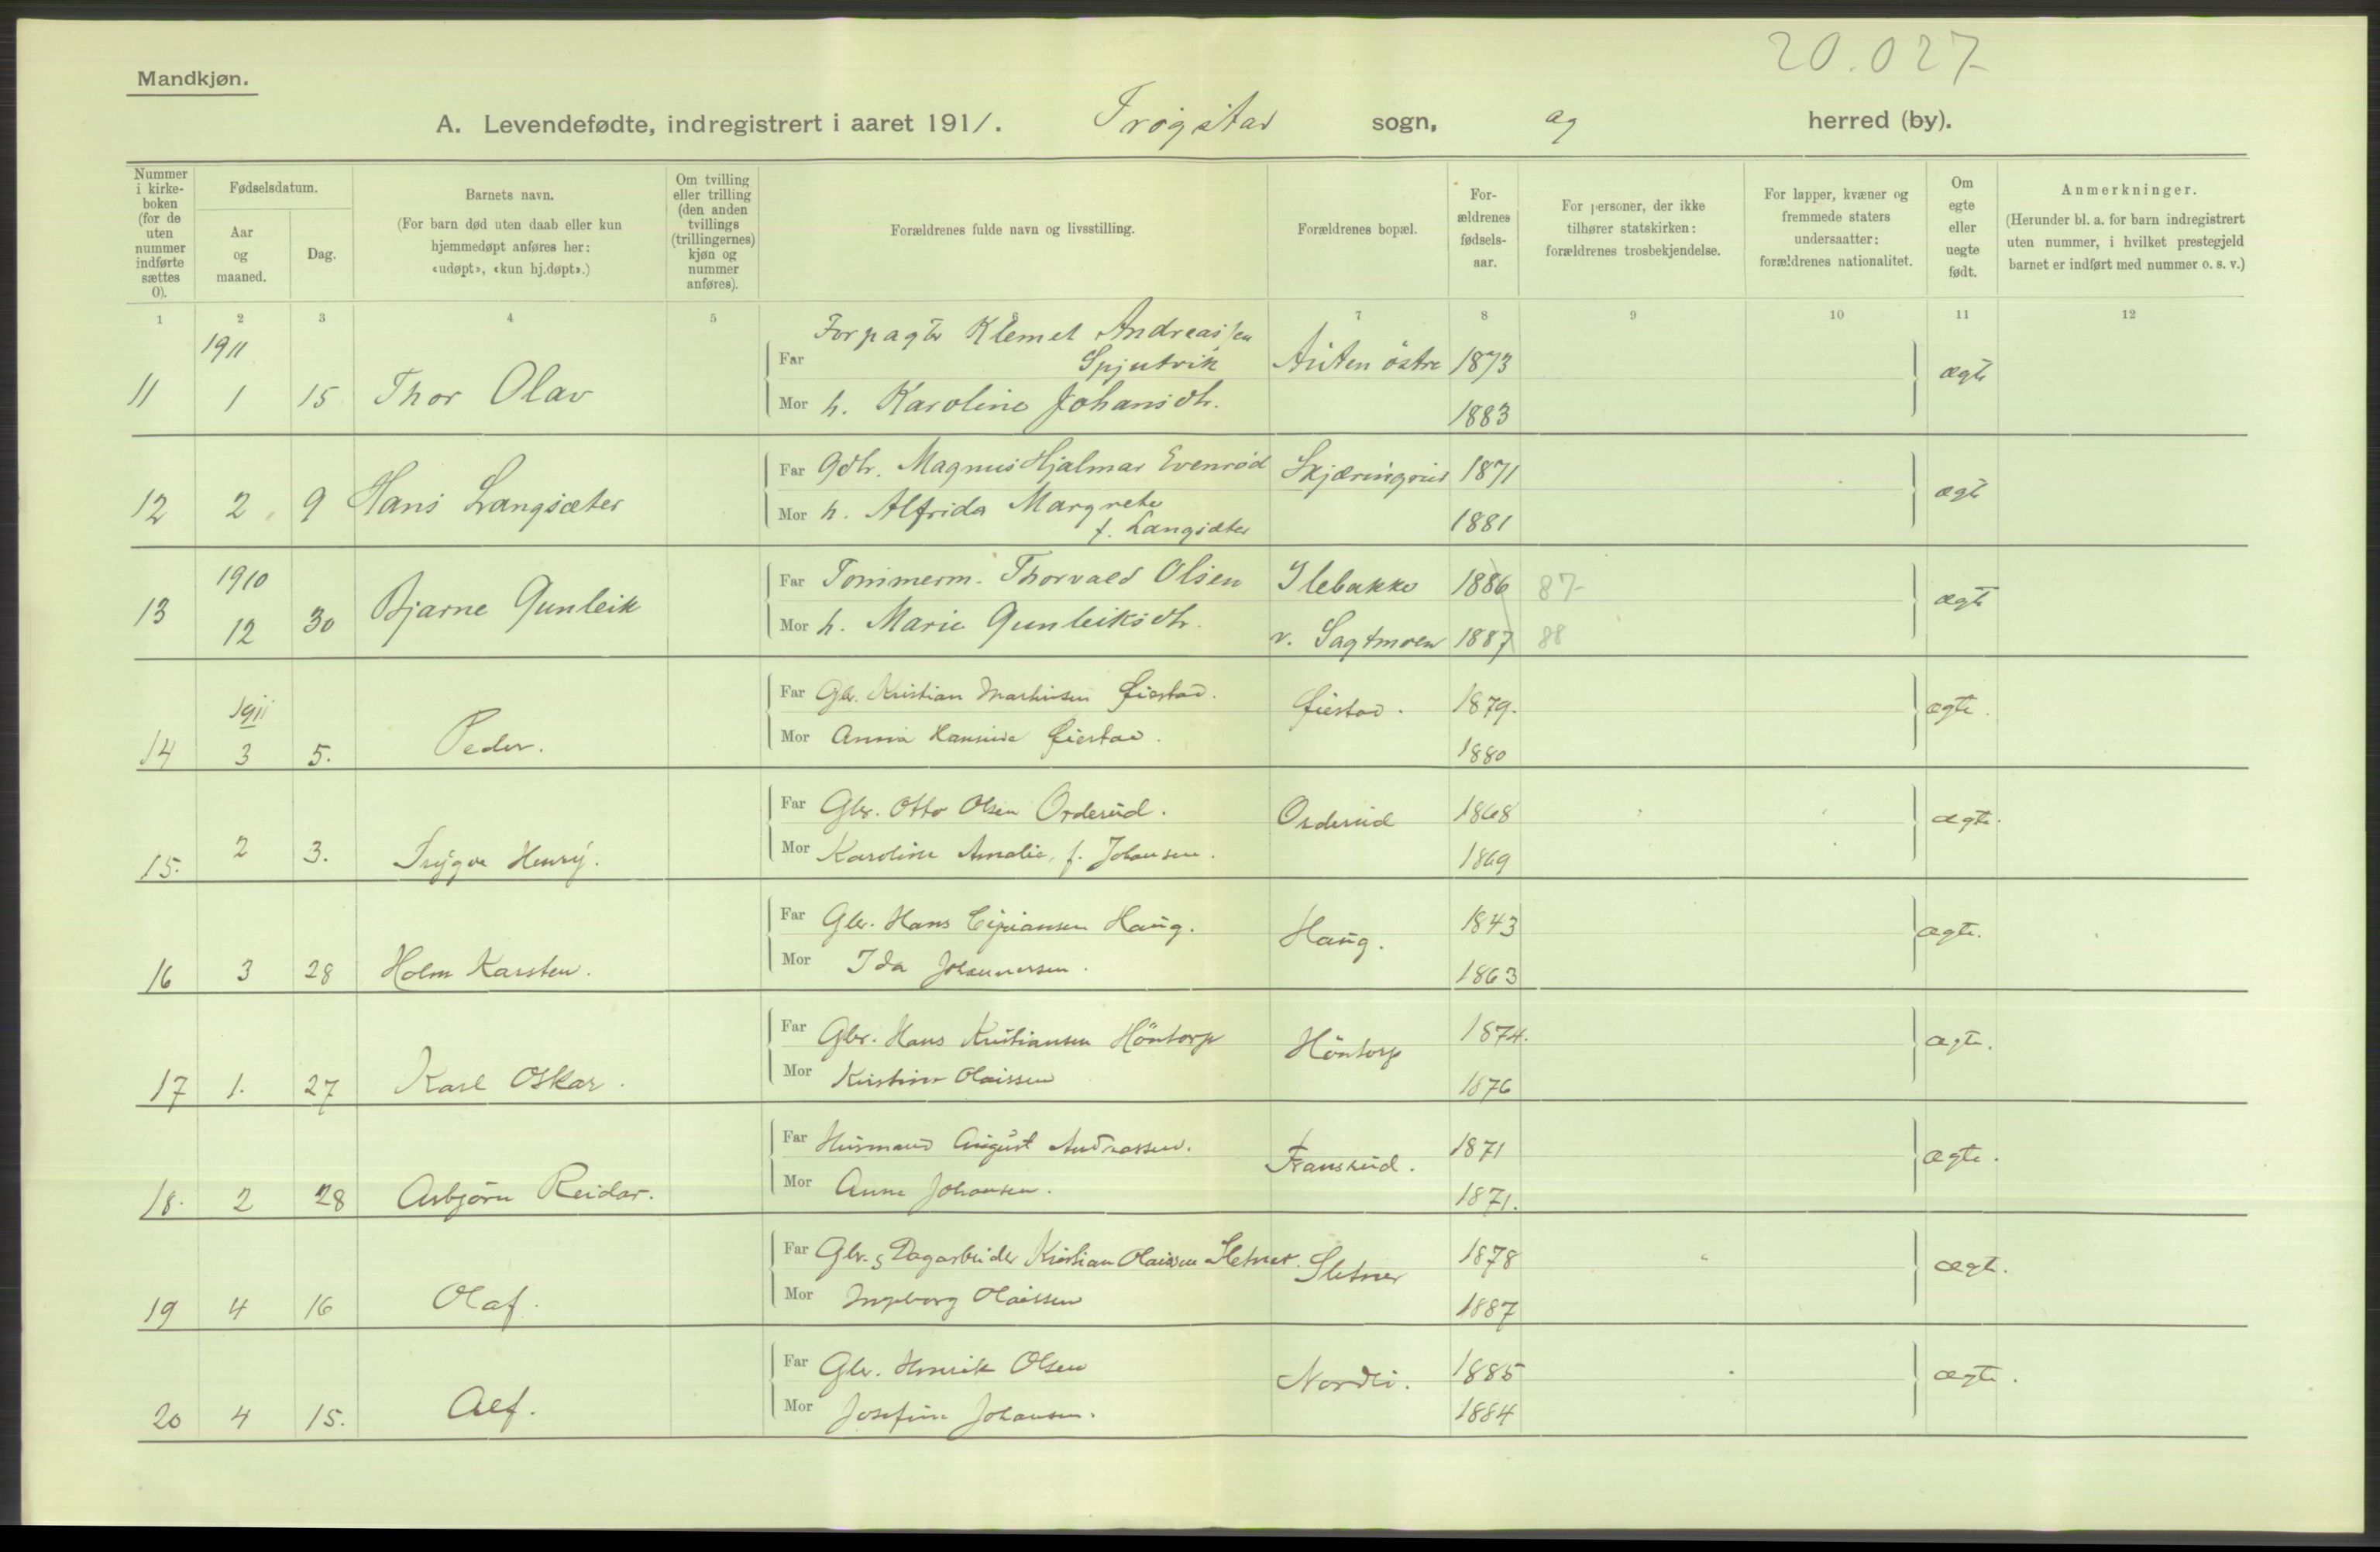 20.027
Mandkjøn.
A. Levendefødte, indregistrert i aaret 1911. Trøgstad sogn, og herred (by).
Nummer i kirkeboken (for de uten nummer indførte sættes 0).
Fødselsdatum.
Aar og maaned.
Dag.
Barnets navn.
(For barn død uten daab eller kun hjemmedøpt anføres her: «udøpt», «kun hj.døpt».)
Om tvilling eller trilling (den anden tvillings (trillingernes) kjøn og nummer anføres).
Forældrenes fulde navn og livsstilling.
Forældrenes bopæl.
Forældrenes fødselsaar.
For personer, der ikke tilhører statskirken: forældrenes trosbekjendelse.
For lapper, kvæner og fremmede staters undersaatter: forældrenes nationalitet.
Om egte eller uegte født.
Anmerkninger.
(Herunder bl. a. for barn indregistrert uten nummer, i hvilket prestegjeld barnet er indført med nummer o. s. v.)
1 2 3 4 5 7 8 9 10 11 12
1911 Forpagter Klemet Andreassen
Far Spjutvik Auten östre 1873
11 1 15 Thor Olav ægte
Mor h. Karoline Johansdtr. 1883
Far Gdbr. Magnus Hjalmar Evenrød Skjæringrud 1871
12 2 9 Hans Langsæter ægte
Mor h. Alfrida Margrete
f. Langsæter 1881
1910 Far Tømmerm. Thorvald Olsen Ilebakke 1886 87
13 12 30 Bjarne Gunleik ægte
Mor h. Marie Gunleiksdtr. v. Sagtmoen 1887 88
1911 Far Gbr. Kristian Martinsen Øiestad. Øiestad. 1879.
14 3 5. Peder. ægte.
Mor Anna Hansine Øiestad. 1880
Far Gbr. Otto Olsen Orderud. Orderud 1868
15. 2 3. Trygve Henry. ægte.
Mor Karoline Amalie, f. Johansen. 1869
Far Gbr. Hans Cipriansen Haug. Haug. 1843
16 3 28 Holm Karsten. ægte.
Mor Ida Johannessen. 1863
Far Gbr. Hans Kristiansen Höntorp Höntorp 1874.
17 1. 27 Karl Oskar. ægte.
Mor Kristine Olaissen 1876
Far Husmand August Andreassen. 1871
18. 2 28 Asbjörn Reidar. ægte.
Mor Anne Johansen. 1871.
Far Gbr. & Dagarbeider Kristian Olaissen Sletner. Sletner 1878
19 4 16 Olaf. ægte.
Mor Ingeborg Olaissen 1887
Far Gbr. Henrik Olsen Nordli. 1885
20 4 15. Alf. ægte.
Mor Josefine Johansen. 1884